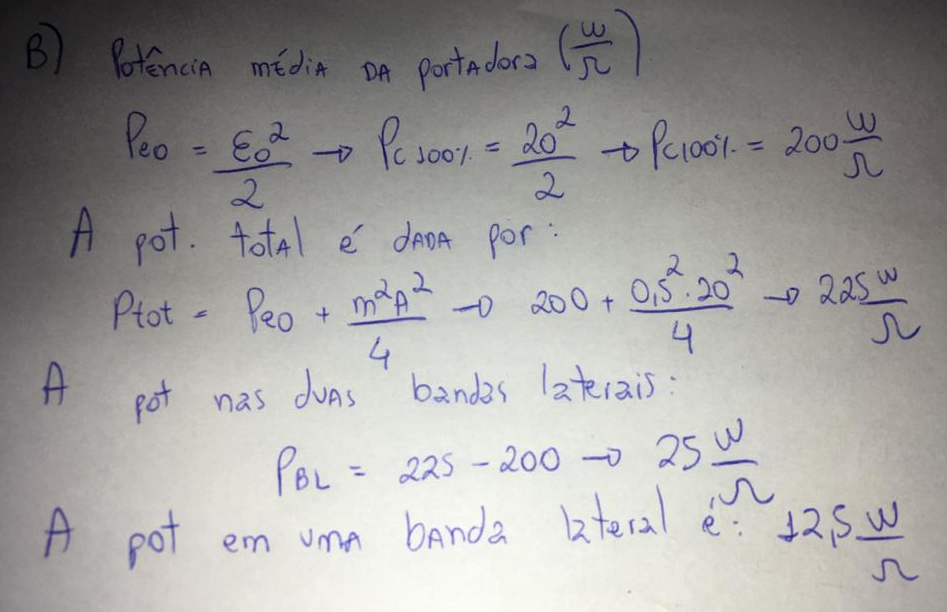 B) Potência média da portadora (W/Ω)
Peo = Eo²/2 → Pc100% = 20²/2 → Pc100% = 200 W/Ω
A pot. total é dada por:
Ptot = Peo + m²A²/4 → 200 + 0,5²·20²/4 → 225 W/Ω
A pot nas duas bandas laterais:
PBL = 225 - 200 → 25 W/Ω
A pot em uma banda lateral é: 12,5 W/Ω